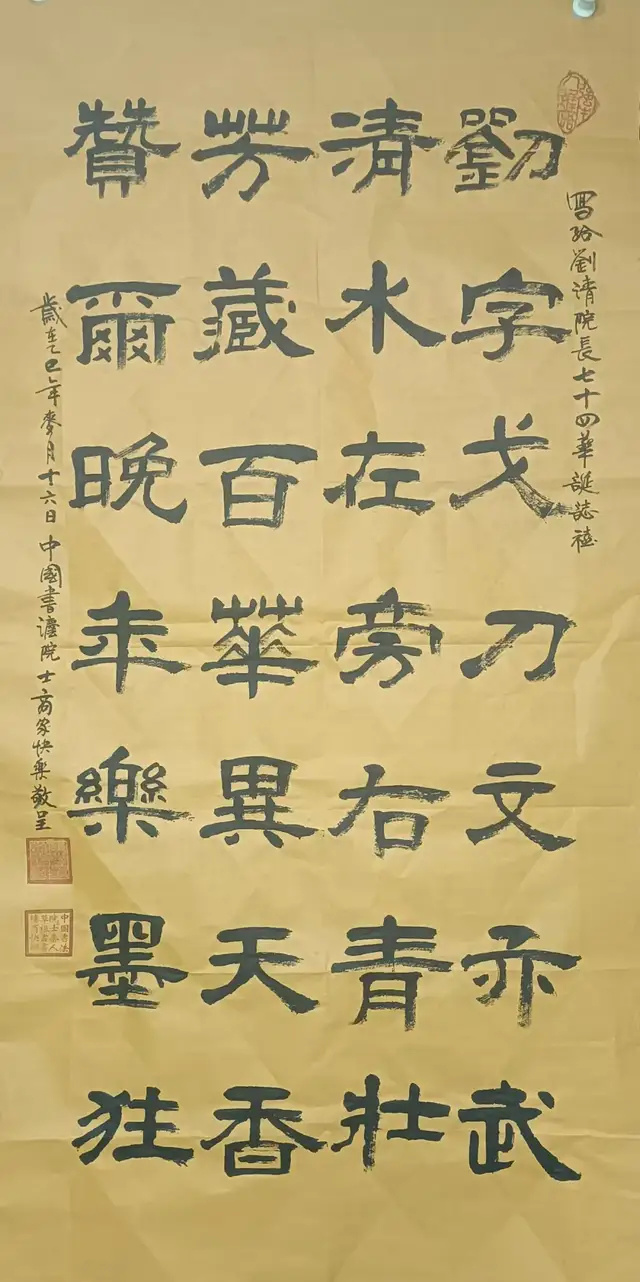 寫给劉清院長七十四華誕誌禧
劉字戈刀文亦武
清水左旁右青壯
芳藏百華異天香
贊爾晚年樂墨狂
歲在乙巳年麥月十六日中國書灋院士商家快樂敬呈